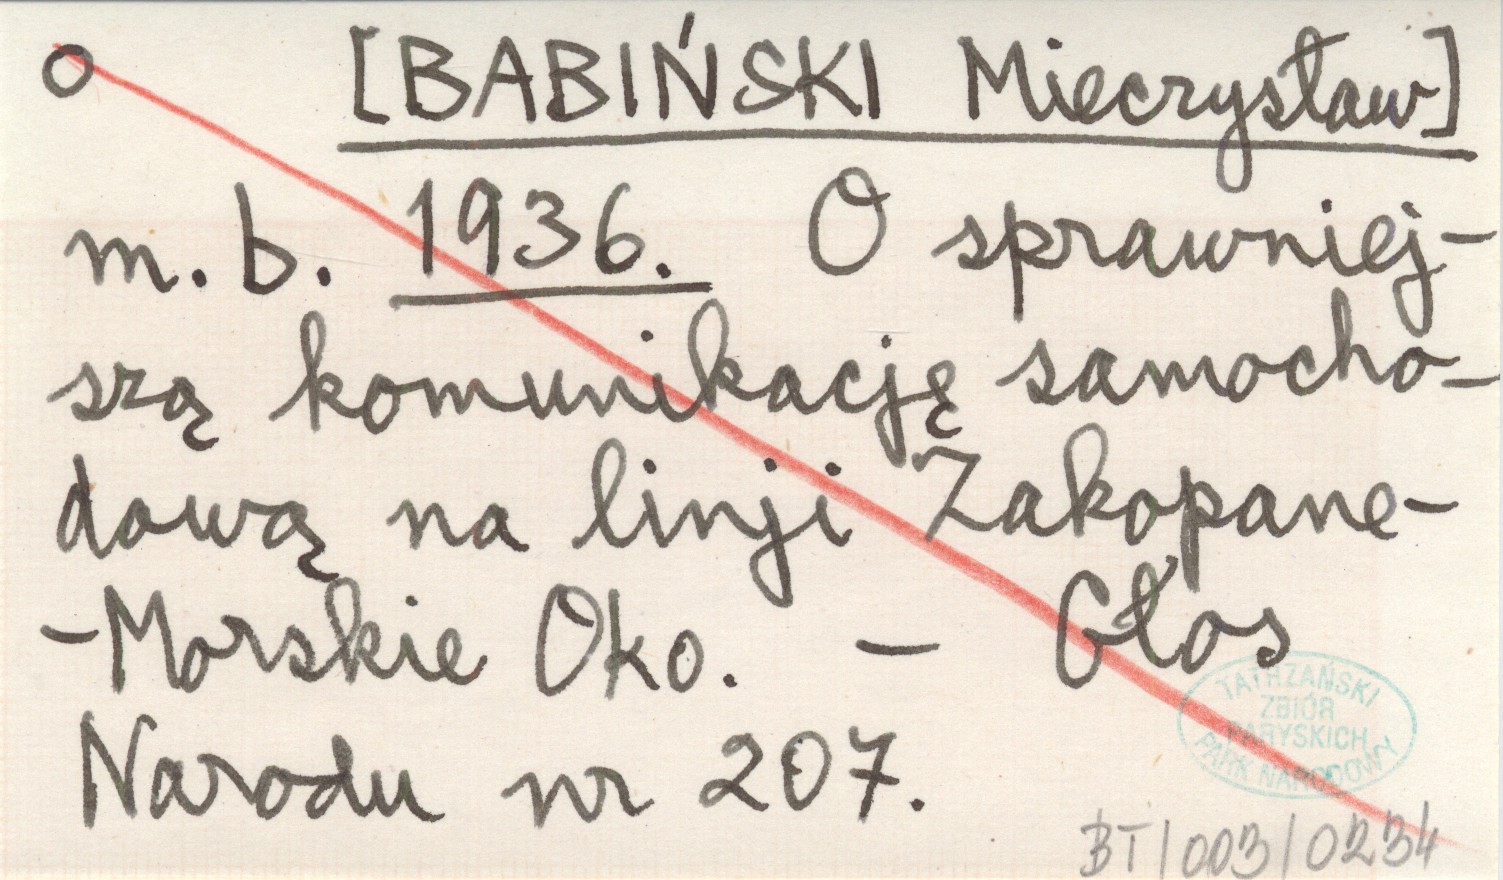 o [BABIŃSKI Mieczysław]
m. b. 1936. O sprawniej-
szą komunikację samocho-
dową na linji Zakopane-
-Morskie Oko. - Głos
Narodu nr 207.
TATRZAŃSKI
ZBIÓR
PARYSKICH
PARK NARODOWY
BT/003/0234